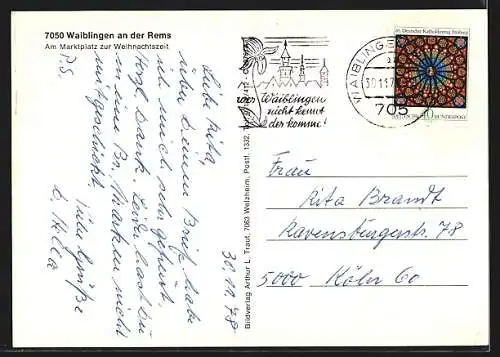 7050 Waiblingen an der Rems
Am Marktplatz zur Weihnachtszeit
30.11.78
Liebe Rita,
über Deinen Brief habe
ich mich sehr gefreut.
Hzgl. Dank. Leider hast du
mir eine Br. Marken nicht
mitgeschickt.
Viele Grüße
P.S.
Bildverlag Arthur L. Trauf, 7063 Welzheim, Postf. 1332,
wer
Waiblingen
nicht kennt
der komme!
WAIBLINGEN
30.11.7
705
85. Deutscher Katholikentag Freiburg
40
DEUTSCHE BUNDESPOST
Frau
Rita Brandt
Ravensburgerstr. 78
5000 Köln 60